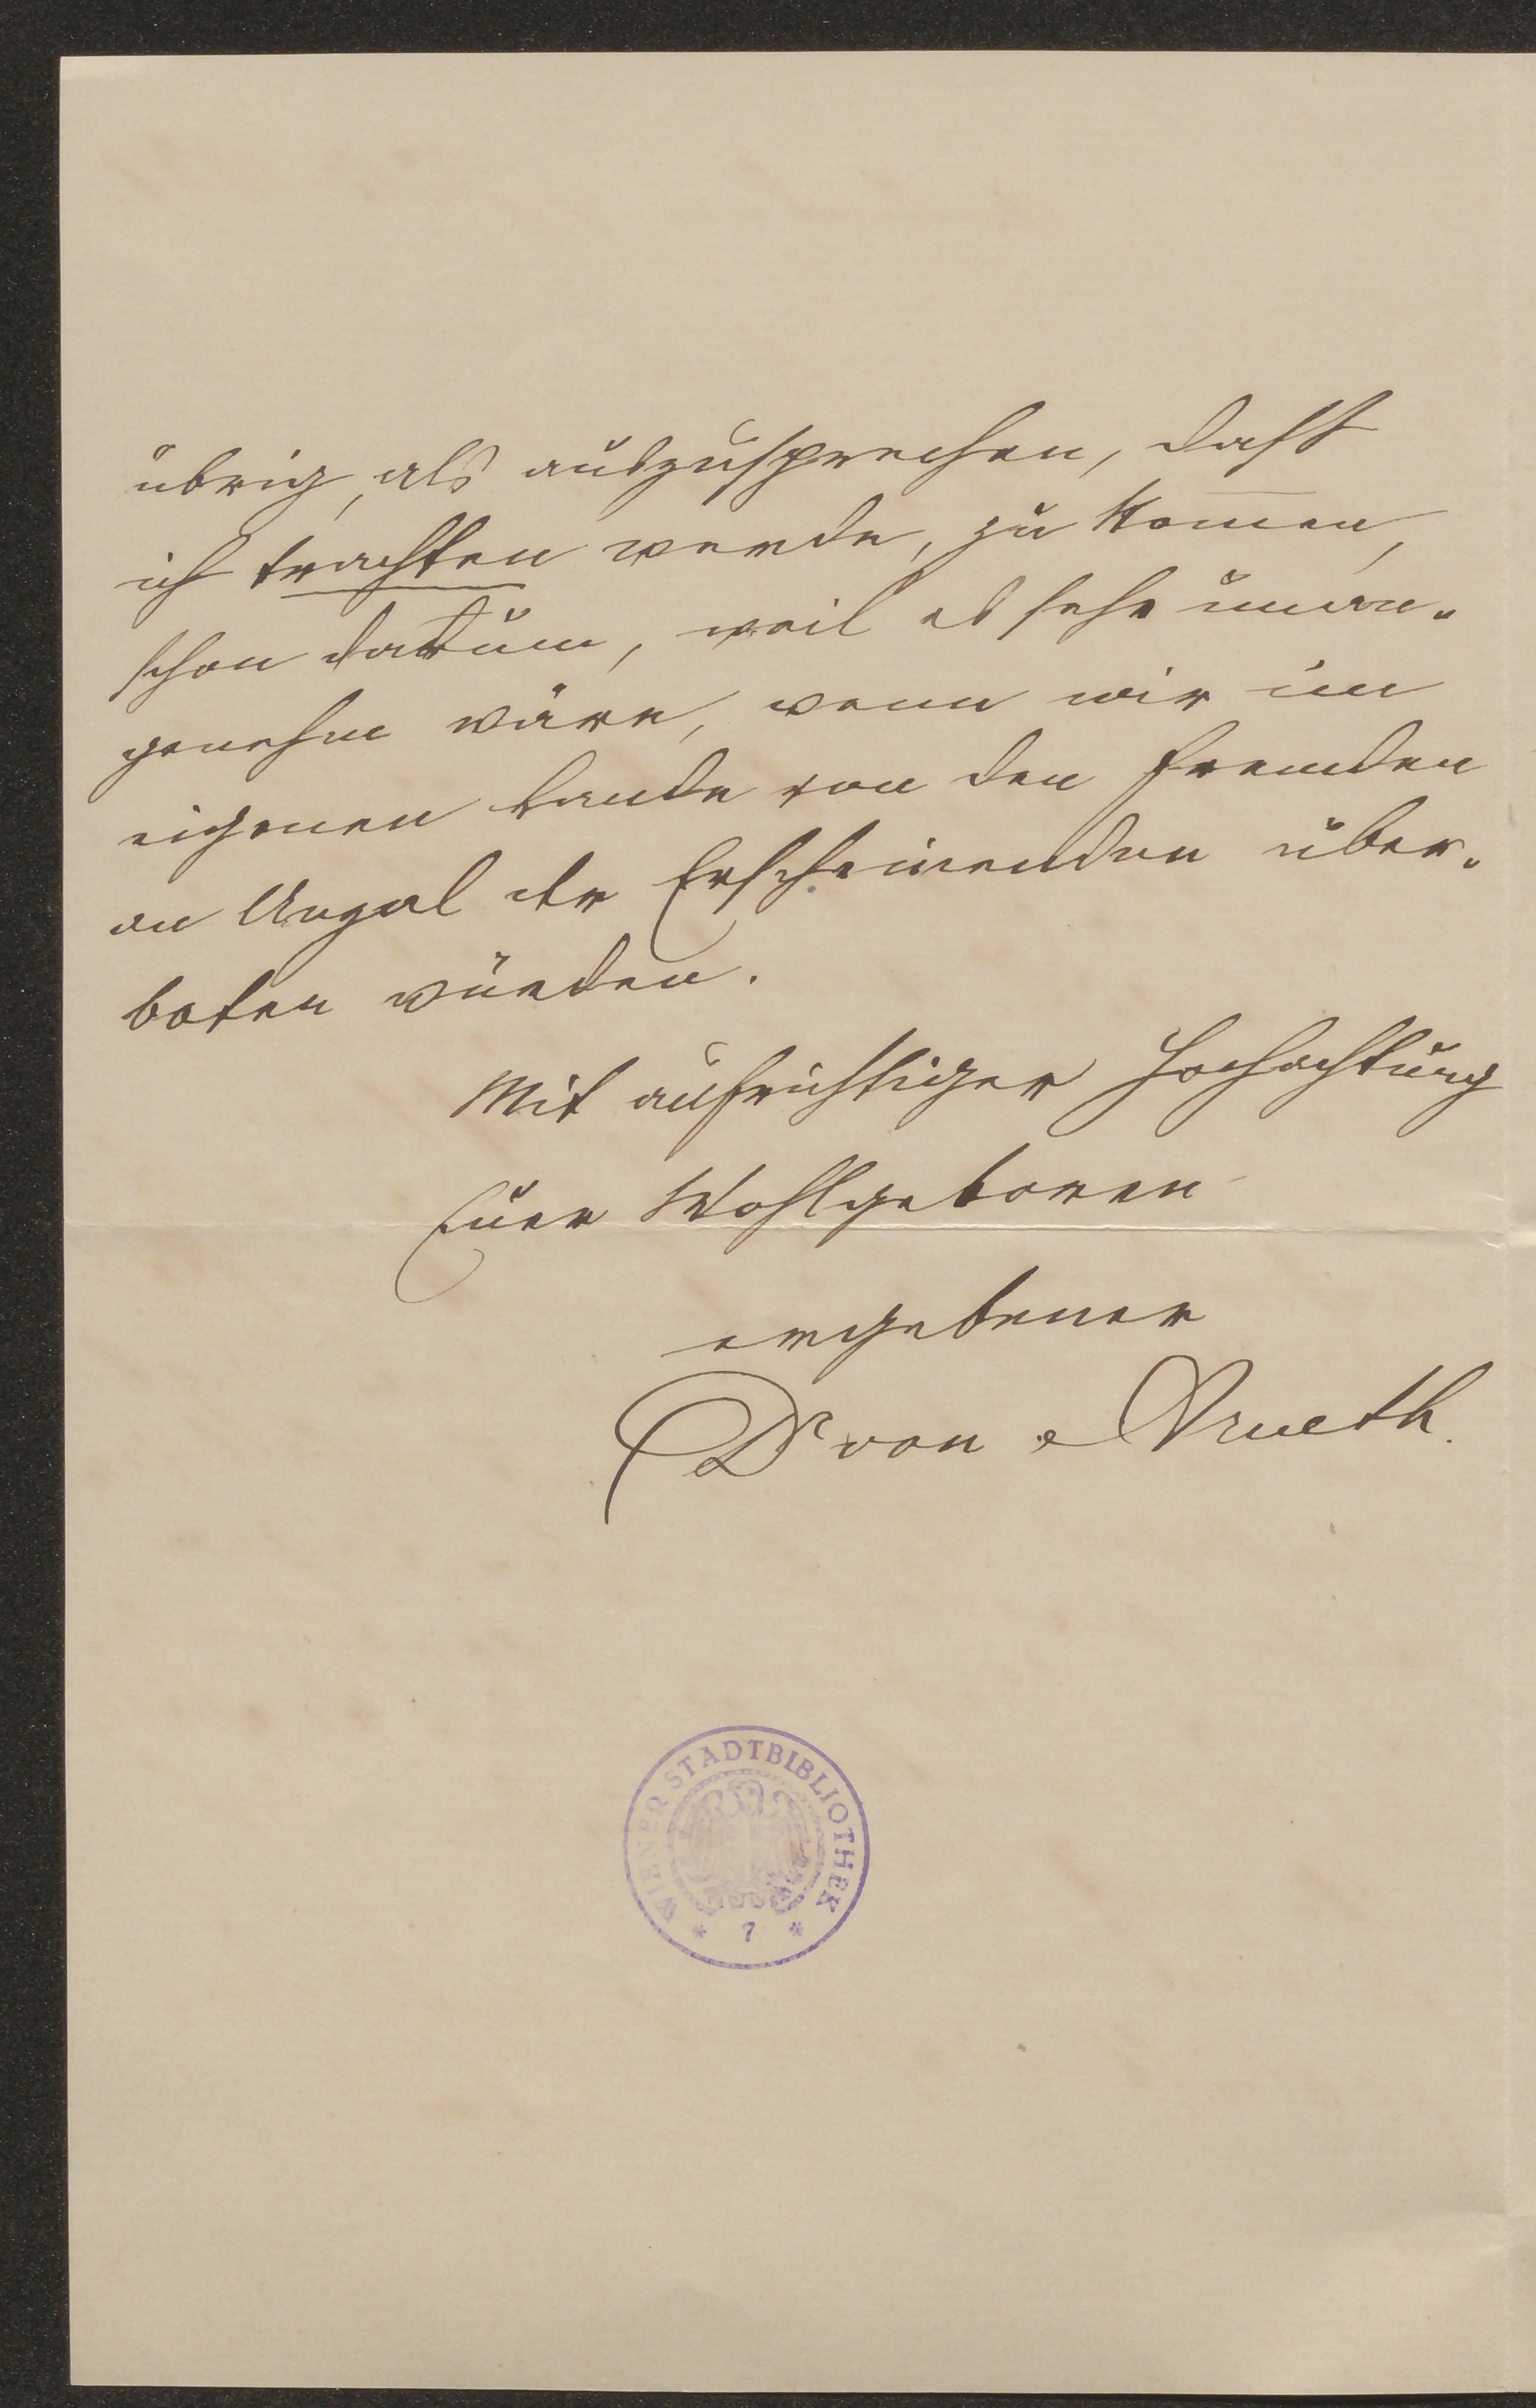 übrig, als auszusprechen, dass
ich trachten werde, zu kom̅en,
schon darum, weil es sehr unan-
genehm wäre, wenn wir im
eigenen Lande von den Fremden
an Anzal der Erscheinenden über-
boten würden.
Mit aufrichtiger Hochachtung
Euer Wohlgeboren
ergebener
Dr von Arneth.
WIENER STADTBIBLIOTHEK
* 7 *